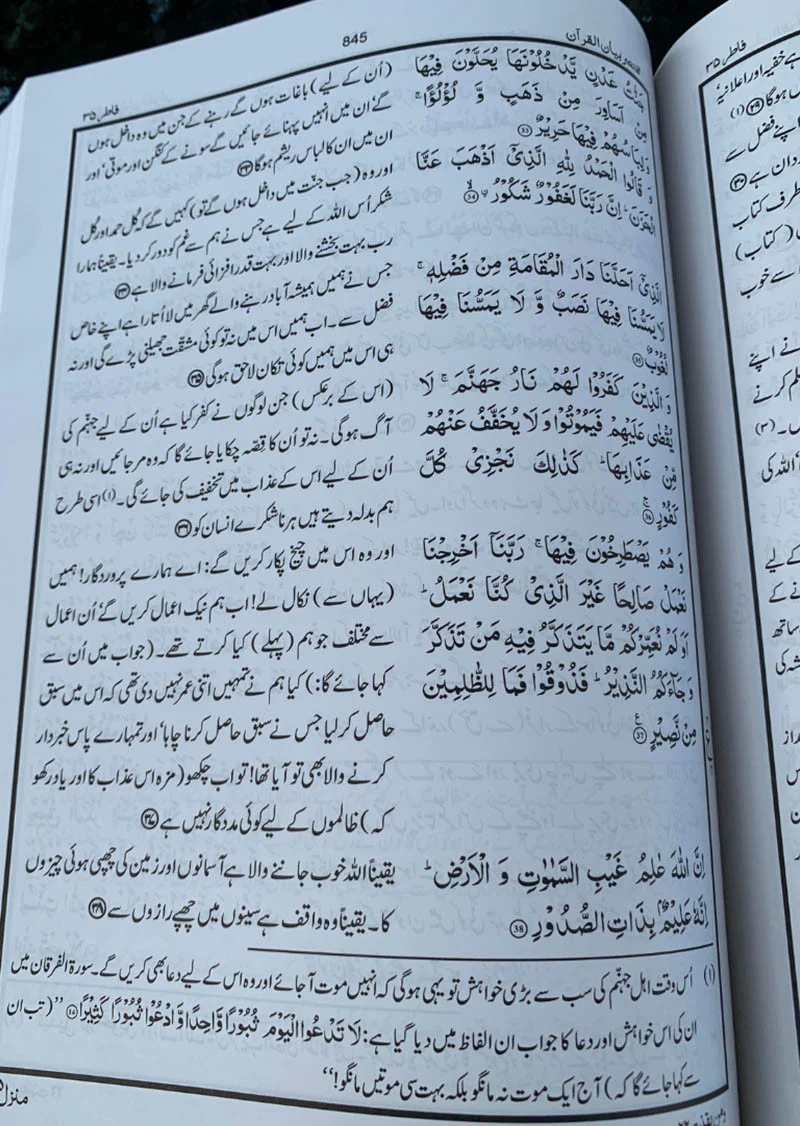 845
مختصر بیان القرآن
فاطر ۳۵
جَنّٰتُ عَدْنٍ یَّدْخُلُوْنَهَا یُحَلَّوْنَ فِیْهَا
مِنْ اَسَاوِرَ مِنْ ذَهَبٍ وَّ لُؤْلُؤًا ۚ
وَ لِبَاسُهُمْ فِیْهَا حَرِیْرٌ 33
وَ قَالُوا الْحَمْدُ لِلّٰهِ الَّذِیْۤ اَذْهَبَ عَنَّا
الْحَزَنَ ؕ اِنَّ رَبَّنَا لَغَفُوْرٌ شَكُوْرُ 34
الَّذِیْۤ اَحَلَّنَا دَارَ الْمُقَامَةِ مِنْ فَضْلِهٖ ۚ
لَا یَمَسُّنَا فِیْهَا نَصَبٌ وَّ لَا یَمَسُّنَا فِیْهَا
لُغُوْبٌ 35
وَ الَّذِیْنَ كَفَرُوْا لَهُمْ نَارُ جَهَنَّمَ ۚ لَا
یُقْضٰی عَلَیْهِمْ فَیَمُوْتُوْا وَ لَا یُخَفَّفُ عَنْهُمْ
مِّنْ عَذَابِهَا ؕ كَذٰلِكَ نَجْزِیْ كُلَّ
كَفُوْرٍ 36
وَ هُمْ یَصْطَرِخُوْنَ فِیْهَا ۚ رَبَّنَاۤ اَخْرِجْنَا
نَعْمَلْ صَالِحًا غَیْرَ الَّذِیْ كُنَّا نَعْمَلُ ؕ
اَوَ لَمْ نُعَمِّرْكُمْ مَّا یَتَذَكَّرُ فِیْهِ مَنْ تَذَكَّرَ
وَ جَآءَكُمُ النَّذِیْرُ ؕ فَذُوْقُوْا فَمَا لِلظّٰلِمِیْنَ
مِنْ نَّصِیْرٍ 37
اِنَّ اللّٰهَ عٰلِمُ غَیْبِ السَّمٰوٰتِ وَ الْاَرْضِ ؕ
اِنَّهٗ عَلِیْمٌۢ بِذَاتِ الصُّدُوْرِ 38
(اُن کے لیے) باغات ہوں گے رہنے کے جن میں وہ داخل ہوں
گے' ان میں انہیں پہنائے جائیں گے سونے کے کنگن اور موتی' اور
ان میں ان کا لباس ریشم ہوگا ۳۳
اور وہ (جب جنّت میں داخل ہوں گے تو) کہیں گے کہ کُل حمد اور کُل
شکر اُس اللہ کے لیے ہے جس نے ہم سے غم کو دور کر دیا۔ یقیناً ہمارا
رب بہت بخشنے والا اور بہت قدر افزائی فرمانے والا ہے ۳۴
جس نے ہمیں ہمیشہ آباد رہنے والے گھر میں لا اُتارا ہے اپنے خاص
فضل سے۔ اب ہمیں اس میں نہ تو کوئی مشقت جھیلنی پڑے گی اور نہ
ہی اس میں ہمیں کوئی تکان لاحق ہوگی ۳۵
(اس کے برعکس) جن لوگوں نے کفر کیا ہے اُن کے لیے جہنّم کی
آگ ہوگی۔ نہ تو اُن کا قصّہ چکایا جائے گا کہ وہ مر جائیں اور نہ ہی
اُن کے لیے اس کے عذاب میں تخفیف کی جائے گی۔(۱) اسی طرح
ہم بدلہ دیتے ہیں ہر ناشکرے انسان کو ۳۶
اور وہ اس میں چیخ پکار کریں گے: اے ہمارے پروردگار! ہمیں
(یہاں سے) نکال لے! اب ہم نیک اعمال کریں گے' اُن اعمال
سے مختلف جو ہم (پہلے) کیا کرتے تھے۔ (جواب میں اُن سے
کہا جائے گا:) کیا ہم نے تمہیں اتنی عمر نہیں دی تھی کہ اس میں سبق
حاصل کر لیتا جس نے سبق حاصل کرنا چاہا' اور تمہارے پاس خبردار
کرنے والا بھی تو آیا تھا! تو اب چکھو (مزہ اس عذاب کا اور یاد رکھو
کہ) ظالموں کے لیے کوئی مددگار نہیں ہے ۳۷
یقیناً اللہ خوب جاننے والا ہے آسمانوں اور زمین کی چھپی ہوئی چیزوں
کا۔ یقیناً وہ واقف ہے سینوں میں چھپے رازوں سے ۳۸
(۱) اُس وقت اہل جہنّم کی سب سے بڑی خواہش تو یہی ہوگی کہ انہیں موت آ جائے اور وہ اس کے لیے دعا بھی کریں گے۔ سورۃ الفرقان میں
ان کی اس خواہش اور دعا کا جواب ان الفاظ میں دیا گیا ہے: لَا تَدْعُوا الْیَوْمَ ثُبُوْرًا وَّاحِدًا وَّادْعُوْا ثُبُوْرًا كَثِیْرًا ۱۴ ’’(تب ان
سے کہا جائے گا کہ) آج ایک موت نہ مانگو بلکہ بہت سی موتیں مانگو!‘‘
منزل ۵
ومن یقنت ۲۲
فاطر ۳۵
ہے حقیر اور اعلانیہ'
ہوگا ۲۹ (۱)
اپنے فضل سے
دان ہے ۳۰
طرف کتاب
(کتاب)
ا سے خوب
نے اپنے
لم کرنے
ں۔ (۳)
'اللہ کی
کے لیے
نے کے
ساتھ
شہ کی
داز
س
ن